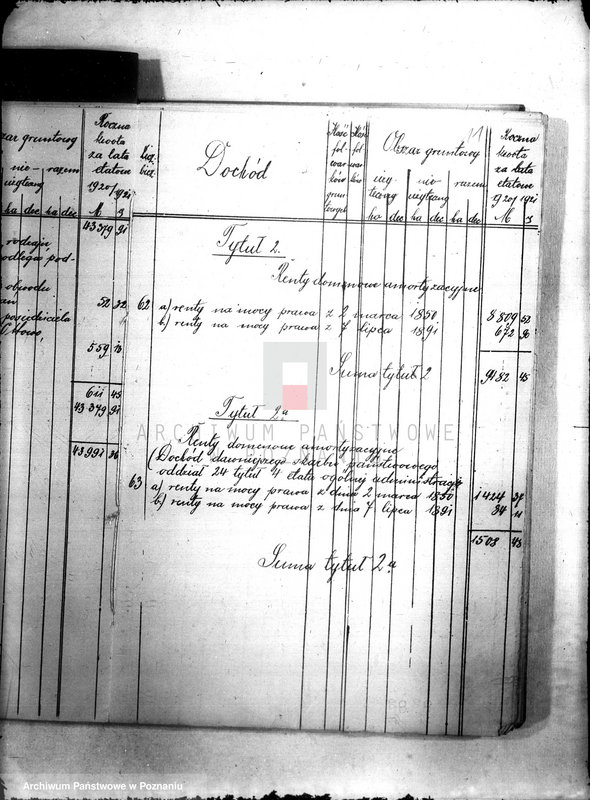 zar gruntowy
nie-
razem
użytang
ha dec ha dec
Roczna
kwota
za lata
etatowe
1920/1921
M
43379 91
rodzaju,
odlega pod-
obwodu
52 32
posiedziciela
559 13
611 45
43 379 91
43991 36
Licz
bież
Dochód
Ilość
fol
war
ków
grun
towych
Obszar gruntowy
11
użyteczng
nie-
użytang
razem
ha dec ha dec ha dec
Roczna
kwota
za lata
etatowe
1920/1921
M
Tytuł 2.
Renty domenowe amortyzacyjne
62 a) renty na mocy prawa z 2 marca 1850 8 809 52
b) renty na mocy prawa z 7 lipca 1891 672 90
Suma tytuł 2 9482 45
Tytuł 2a
Renty domenowe amortyzacyjne
(Dochód dawniejszego skarbu państwowego
oddział 24 tytuł 4 etatu ogólnej administracji)
63 a) renty na mocy prawa z dnia 2 marca 1850 1424 37
b) renty na mocy prawa z dnia 7 lipca 1891 84 11
1508 48
Suma tytuł 2a
ARCHIWUM PAŃSTWOWE
Archiwum Państwowe w Poznaniu